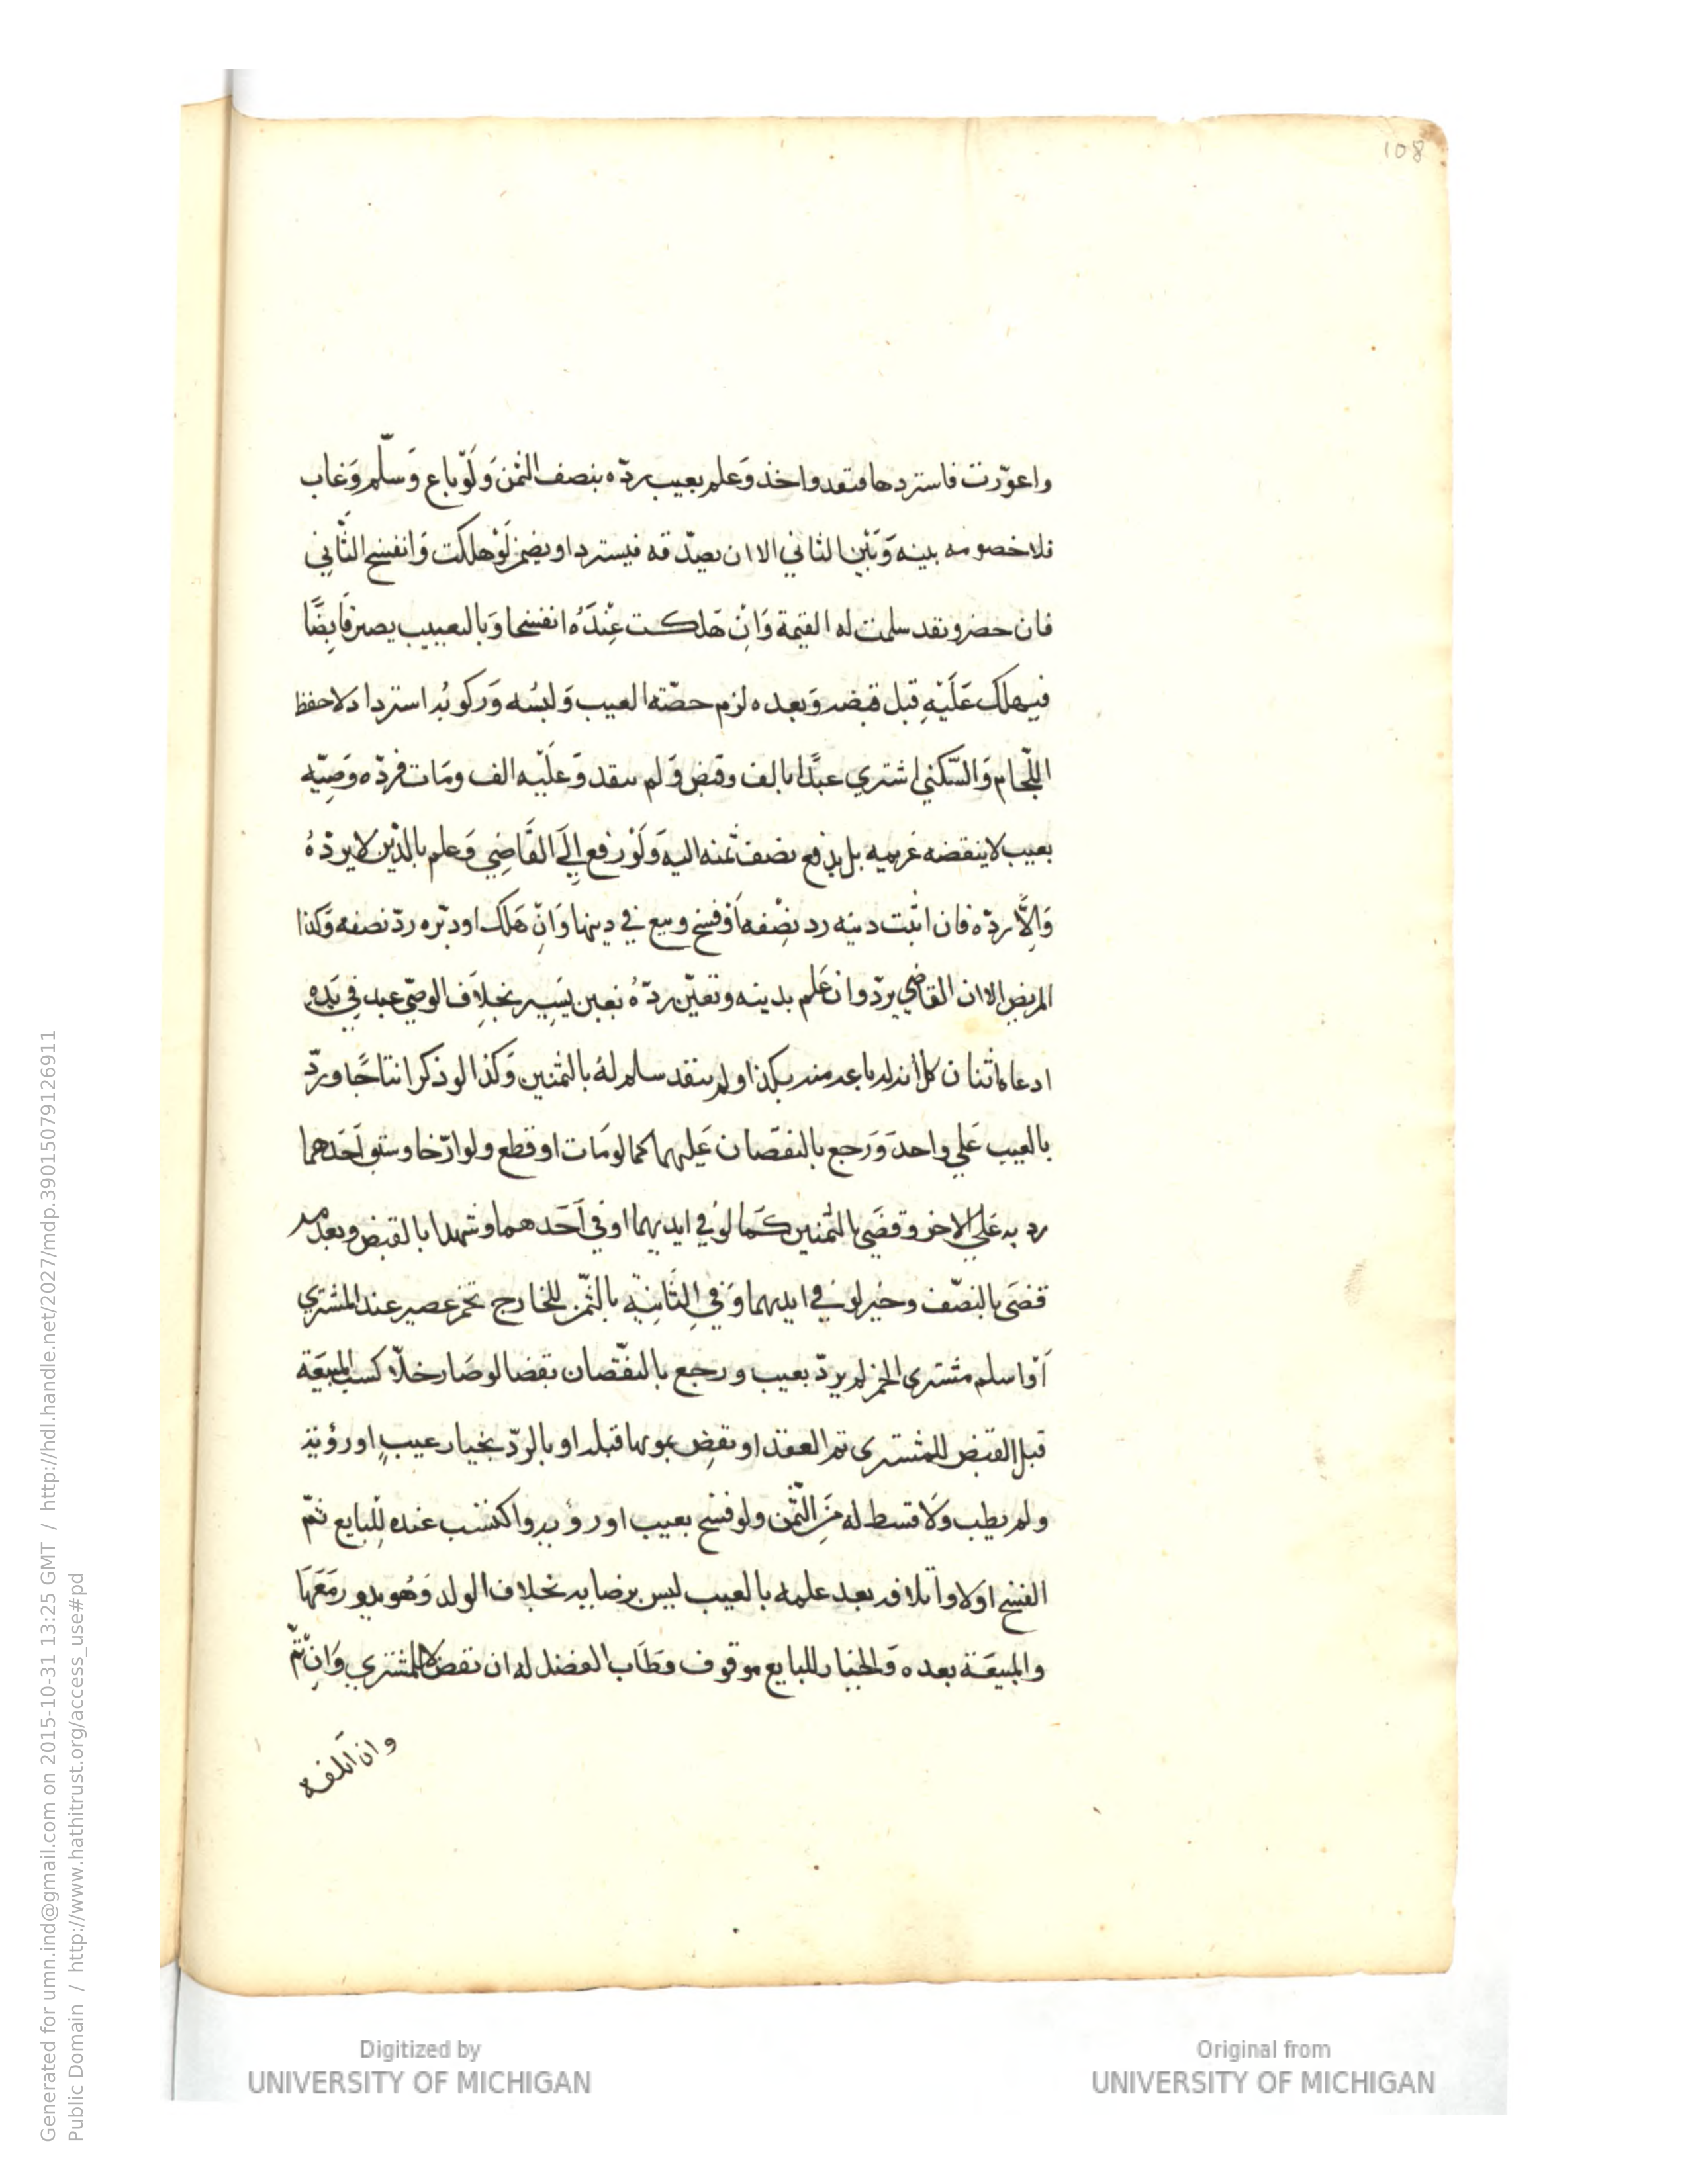 108
واعوّرت فاستردها فنقد واخذ وَعلم بعيب ردّه بنصف الثمن وَلَوْ باع وَسلّم وَغاب
فلا خصومه بينه وَبَيْن الثاني الا ان يصدّقه فيسترد او يضمن لَوْ هلكت وَانفسخ الثَّاني
فان حضر ونقد سلمت له القيمة وَاِنْ هَلكت عِنْدَهُ انفسخا وَبالتعييب يصير قَابِضًا
فيهلك عَلَيْهِ قبل قبضه وَبعده لزم حصّته العيب وَلبسُه وَركوبُه استرداد لا حفظ
اللّجام وَالسّكني اشتري عبدًا بالف وقبض وَلم ينقد وَعلَيْه الف ومَات فردّه وَصِيّه
بعيب لا ينقضه غريمه بل يدفع نصف ثمنه اليه وَلَوْ رفع اِلَي القَاضِي وَعلم بالدّين لا يردّهُ
وَاِلَّا ردّه فان اثبت دينه رد نِصْفه اَوْ فسخ وبيع في دينهما وَانْ هَلك او دبّره ردّ نصفه وَكذا
المريض الا ان القاضي يردّ وان عَلم بدينه وتعيّن ردّهُ بغبن يَسِير بخلاف الوصيّ عبد في يَده
ادعاه اثنان كل أنه له باعه منه بكذا ولم ينقد سلم لهُ بالثمنين وَكذا لو ذكرا نتاجًا وردّ
بالعيب عَلي واحد وَرَجع بالنقصَان عَليهما كما لو مَات او قطع ولو ارّخا وسبق اَحَدهما
رد به عَلي الاخر وقضَي بالثمنين كَما لو في ايديهما او في اَحَدهما وشهدا بالقبض وبعدمه
قضَي بالنصّف وخير لو في ايديهما وَفي الثَّانِيَة بالثّمن للخارج تخمر عصير عند المشتري
اَوْ اسلم مشتري الخمر لم يردّ بعيب ورجع بالنقّصان نقضا لو صَار خلّا كسب المبيعَة
قبل القبض للمشتري تم العقد او نقِض بموتها قبله او بالردّ بخيار عيبٍ او رؤية
ولم يطب وَلا قسط له مَن الثّمن ولو فسخ بعيب او رؤيه واكتسب عنده للبايع تمّ
الفسخ اولا واتلافه بعد علمه بالعيب ليس برضا به بخلاف الولد وَهُو يدور مَعَهَا
والمبيعَة بعده وَالخيار للبايع موقوف وطَاب الفضل له ان نقض لا للمشتري وَانْ تَمَّ
وان اتلفه
Generated for umn.ind@gmail.com on 2015-10-31 13:25 GMT / http://hdl.handle.net/2027/mdp.39015079126911
Public Domain / http://www.hathitrust.org/access_use#pd
Digitized by
UNIVERSITY OF MICHIGAN
Original from
UNIVERSITY OF MICHIGAN